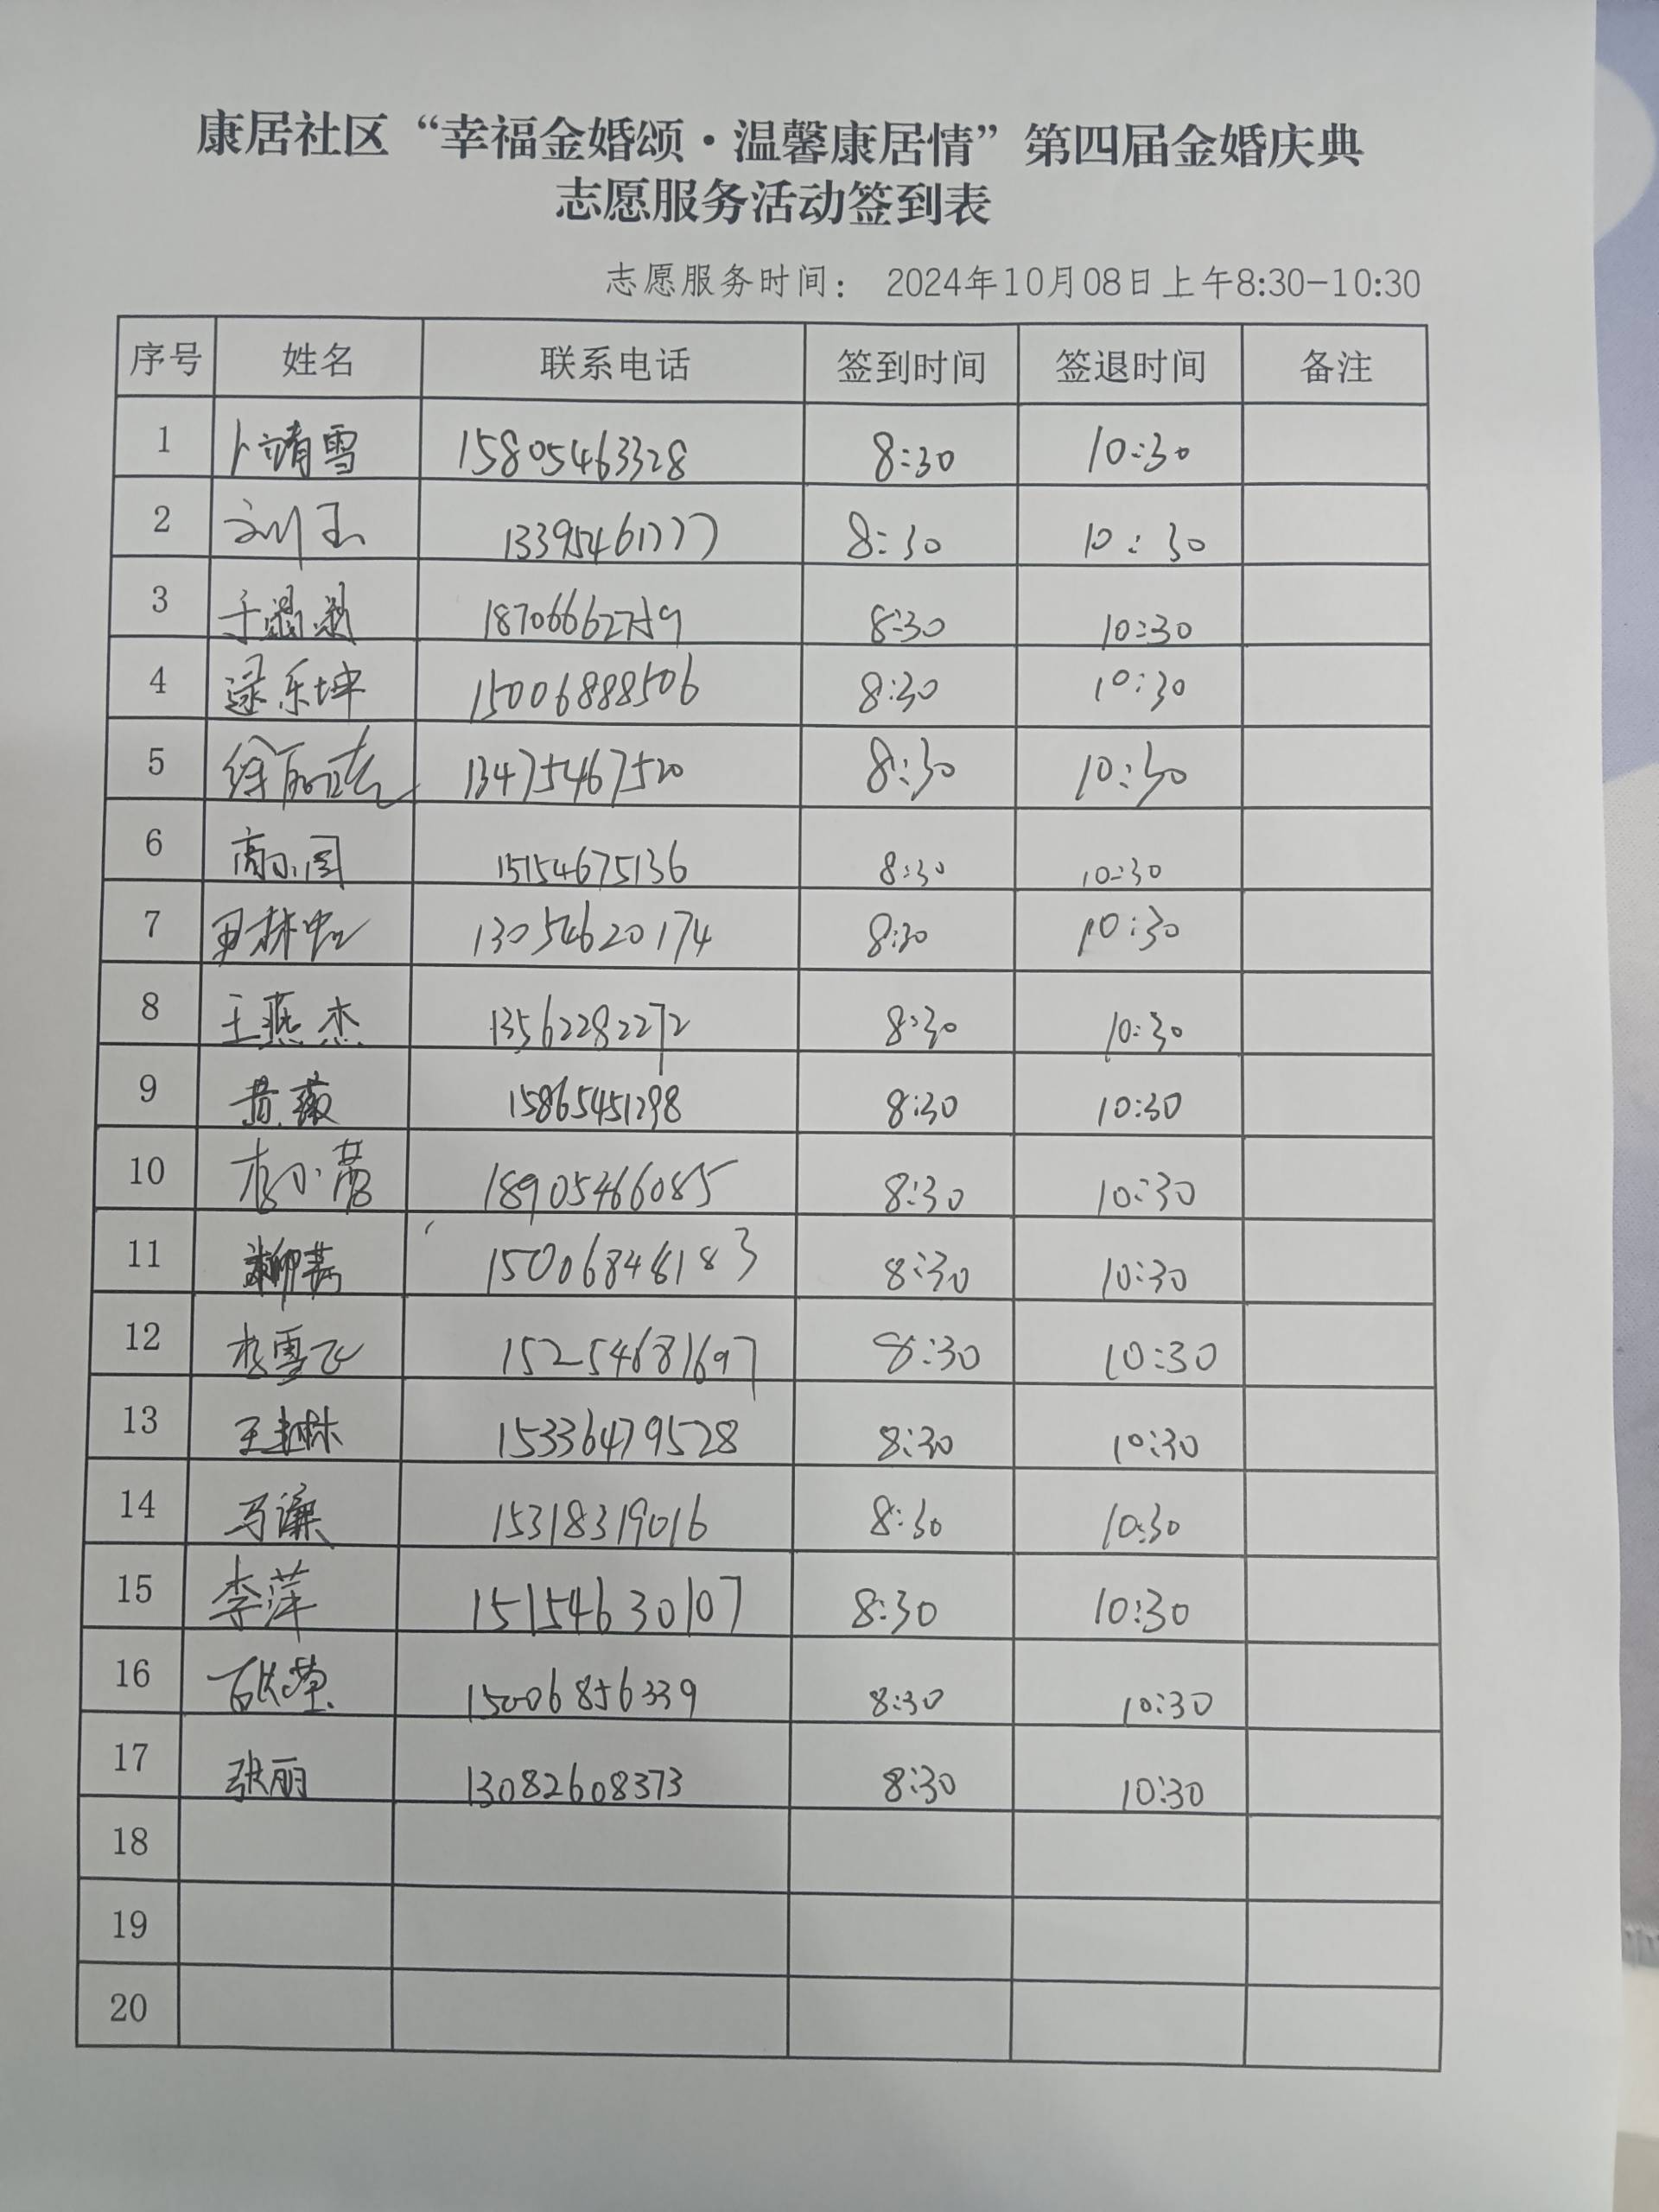 康居社区“幸福金婚颂·温馨康居情”第四届金婚庆典
志愿服务活动签到表
志愿服务时间： 2024年10月08日上午8:30-10:30
序号 姓名 联系电话 签到时间 签退时间 备注
1 卜靖雪 15805463328 8:30 10:30
2 刘玉 13395461777 8:30 10:30
3 8:30 10:30
4 逯乐坤 15006888506 8:30 10:30
5 13475467520 8:30 10:30
6 高小围 15154675136 8:30 10:30
7 13054620174 8:30 10:30
8 王燕杰 13562282272 8:30 10:30
9 黄薇 15865451298 8:30 10:30
10 李小蕾 18905466085 8:30 10:30
11 15006848183 8:30 10:30
12 李雪飞 15254681697 8:30 10:30
13 王越林 15336479528 8:30 10:30
14 马谦 15318319016 8:30 10:30
15 李萍 15154630107 8:30 10:30
16 15006856339 8:30 10:30
17 张丽 13082608373 8:30 10:30
18
19
20